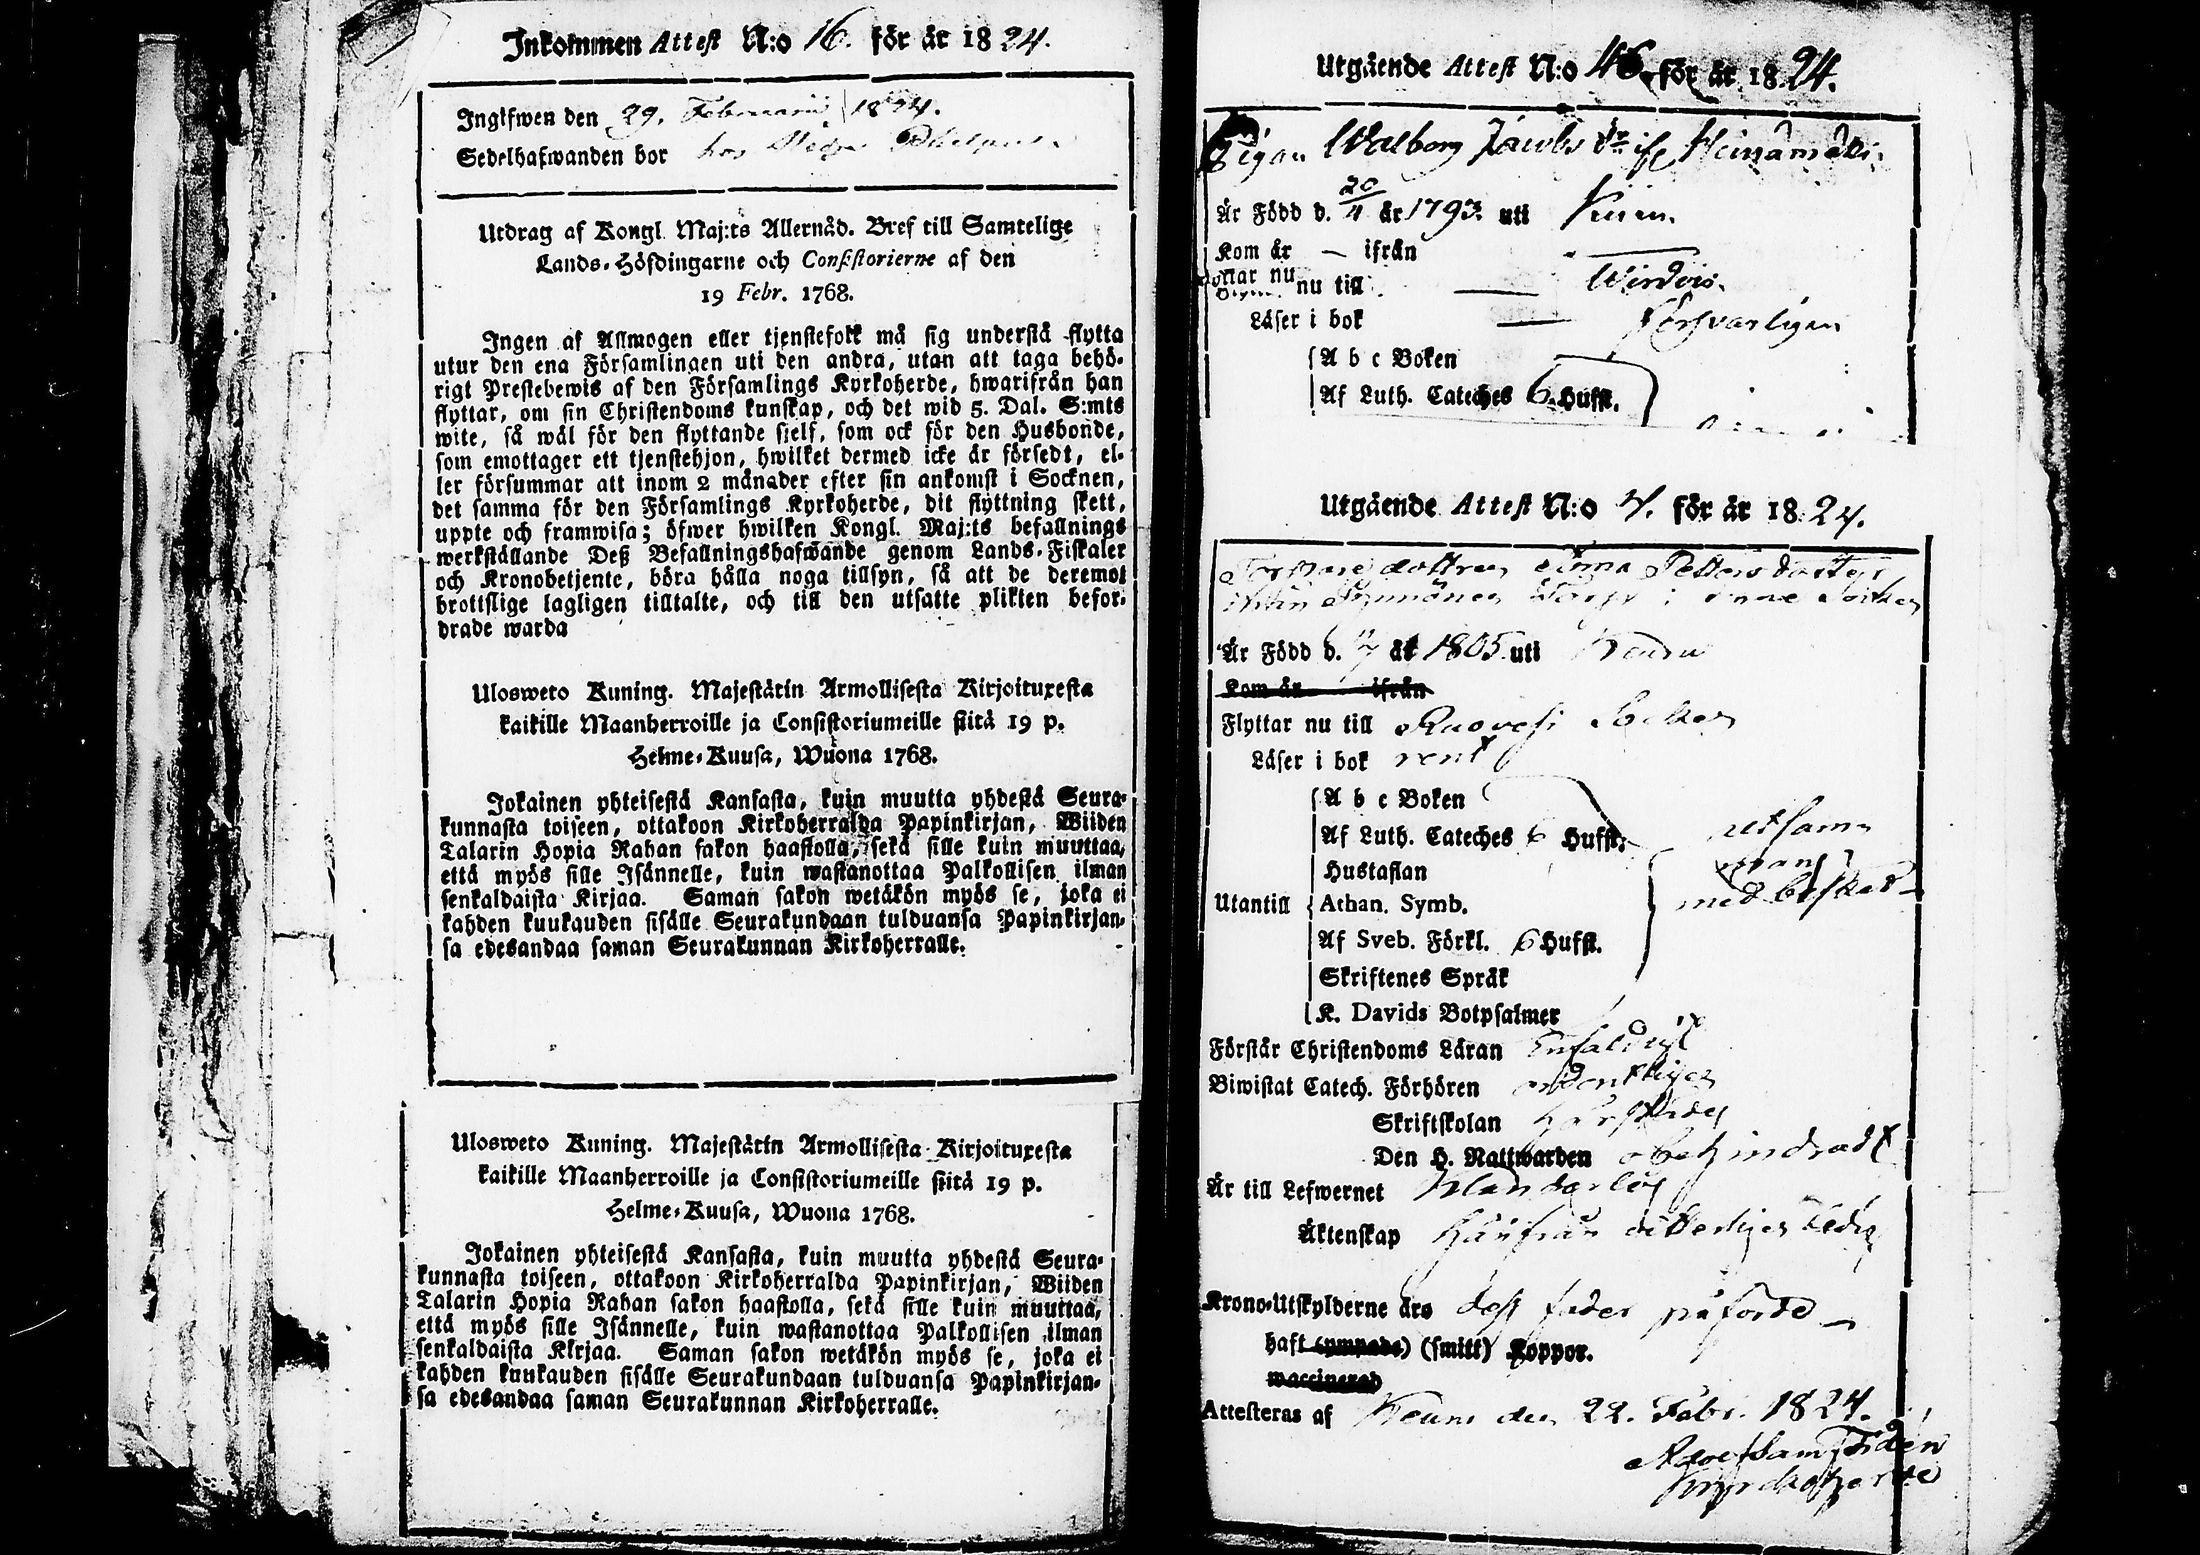 Inkommen Attest N:o 16. för år 1824.
Ingifwen den 29. Februarii 1824.
Sedelhafwanden bor hos
Utdrag af Kongl. Maj:ts Allernåd. Bref till Samtelige
Lands-Höfdingarne och Consistorierne af den
19 Febr. 1768.
Ingen af Allmogen eller tjenstefolk må sig understå flytta
utur den ena Församlingen uti den andra, utan att taga behö-
rigt Prestebewis af den Församlings Kyrkoherde, hwarifrån han
flyttar, om sin Christendoms kunskap, och det wid 5. Dal. S:mts
wite, så wäl för den flyttande sjelf, som ock för den Husbonde,
som emottager ett tjenstehjon, hwilket dermed icke är försedt, el-
ler försummar att inom 2 månader efter sin ankomst i Socknen,
det samma för den Församlings Kyrkoherde, dit flyttning skett,
uppte och framwisa; öfwer hwilken Kongl. Maj:ts befallnings
werkställande Deß Befallningshafwande genom Lands-Fiskaler
och Kronobetjente, böra hålla noga tillsyn, så att de deremot
brottslige lagligen tilltalte, och till den utsatte plikten befor-
drade warda
Ulosweto Kuning. Majestätin Armollisesta Kirjoituxesta
kaikille Maanherroille ja Consistoriumeille siitä 19 p.
Helme-Kuusa, Wuona 1768.
Jokainen yhteisestä Kansasta, kuin muutta yhdestä Seura-
kunnasta toiseen, ottakoon Kirkoherralda Papinkirjan, Wiiden
Talarin Hopia Rahan sakon haastolla, sekä sille kuin muuttaa,
että myös sille Isännelle, kuin wastanottaa Palkollisen ilman
senkaldaista Kirjaa. Saman sakon wetäkön myös se, joka ei
kahden kuukauden sisälle Seurakundaan tulduansa Papinkirjan-
sa edesandaa saman Seurakunnan Kirkoherralle.
Ulosweto Kuning. Majestätin Armollisesta Kirjoituxesta
kaikille Maanherroille ja Consistoriumeille siitä 19 p.
Helme-Kuusa, Wuona 1768.
Jokainen yhteisestä Kansasta, kuin muutta yhdestä Seura-
kunnasta toiseen, ottakoon Kirkoherralda Papinkirjan, Wiiden
Talarin Hopia Rahan sakon haastolla, sekä sille kuin muuttaa,
että myös sille Isännelle, kuin wastanottaa Palkollisen ilman
senkaldaista Kirjaa. Saman sakon wetäkön myös se, joka ei
kahden kuukauden sisälle Seurakundaan tulduansa Papinkirjan-
sa edesandaa saman Seurakunnan Kirkoherralle.
Utgående Attest N:o 46. för år 1824.
Pigan Walborg Jacobs dr if Heinämäki.
Är Född d. 20/4 år 1793. uti
Kom år — ifrån
Flyttar nu nu till Wirdois.
Läser i bok försvarligen
A b c Boken
Af Luth. Cateches 6 Hufst.
Utgående Attest N:o 4. för år 1824.
Torpare dottren Anna Petters dotter
ifrån Torp i Socken
Är Född d. år 1805. uti Keuru
Kom år ifrån
Flyttar nu till Ruovesi Socken
Läser i bok rent
A b c Boken
Af Luth. Cateches 6 Hufst.
Hustaflan
Utantill Athan. Symb.
Af Sveb. Förkl. 6 Hufst.
Skriftenes Språk
K. Davids Botpsalmer
med besked
Förstår Christendoms Läran Enfaldigt
Biwistat Catech. Förhören ordentligen
Skriftskolan
Den H. Nattwarden obehindradt
Är till Lefwernet klanderlös
Äktenskap härifrån ledig
Krono-Utskylderne äro dess fader påförde
haft (ympade) (smitt) Koppor.
waccinerad
Attesteras af Keuru den 22. Febr. 1824.
Kyrckoherde